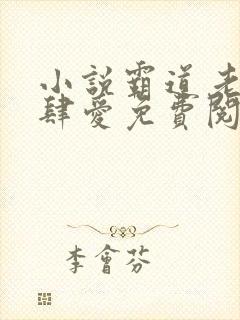 小說霸道老
肆愛免費閱
李會芬